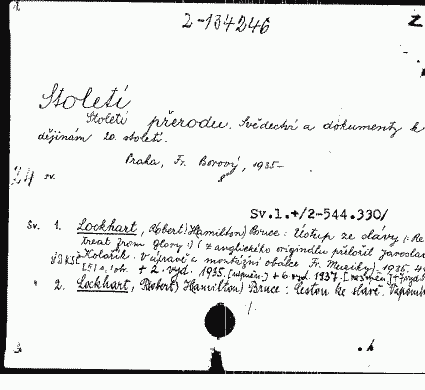 2-134246
Z
Století
Století přerodu. Svědectví a dokumenty k
dějinám 20. století.
Praha, Fr. Borový, 1935-
24 sv.
Sv.1.+/2-544.330/
Sv. 1. Lockhart, R(obert) H(amilton) Bruce: Ústup ze slávy (: Re
treat from glory :) (z anglického originálu přeložil Jaroslav
Kolařík. V úpravě a montážní obálce Fr. Muziky). 1935. 4
+ 2. vyd. 1935. + 6 vyd. 1937.
2. Lockhart, R(obert) H(amilton) Bruce: Cestou ke slávě.